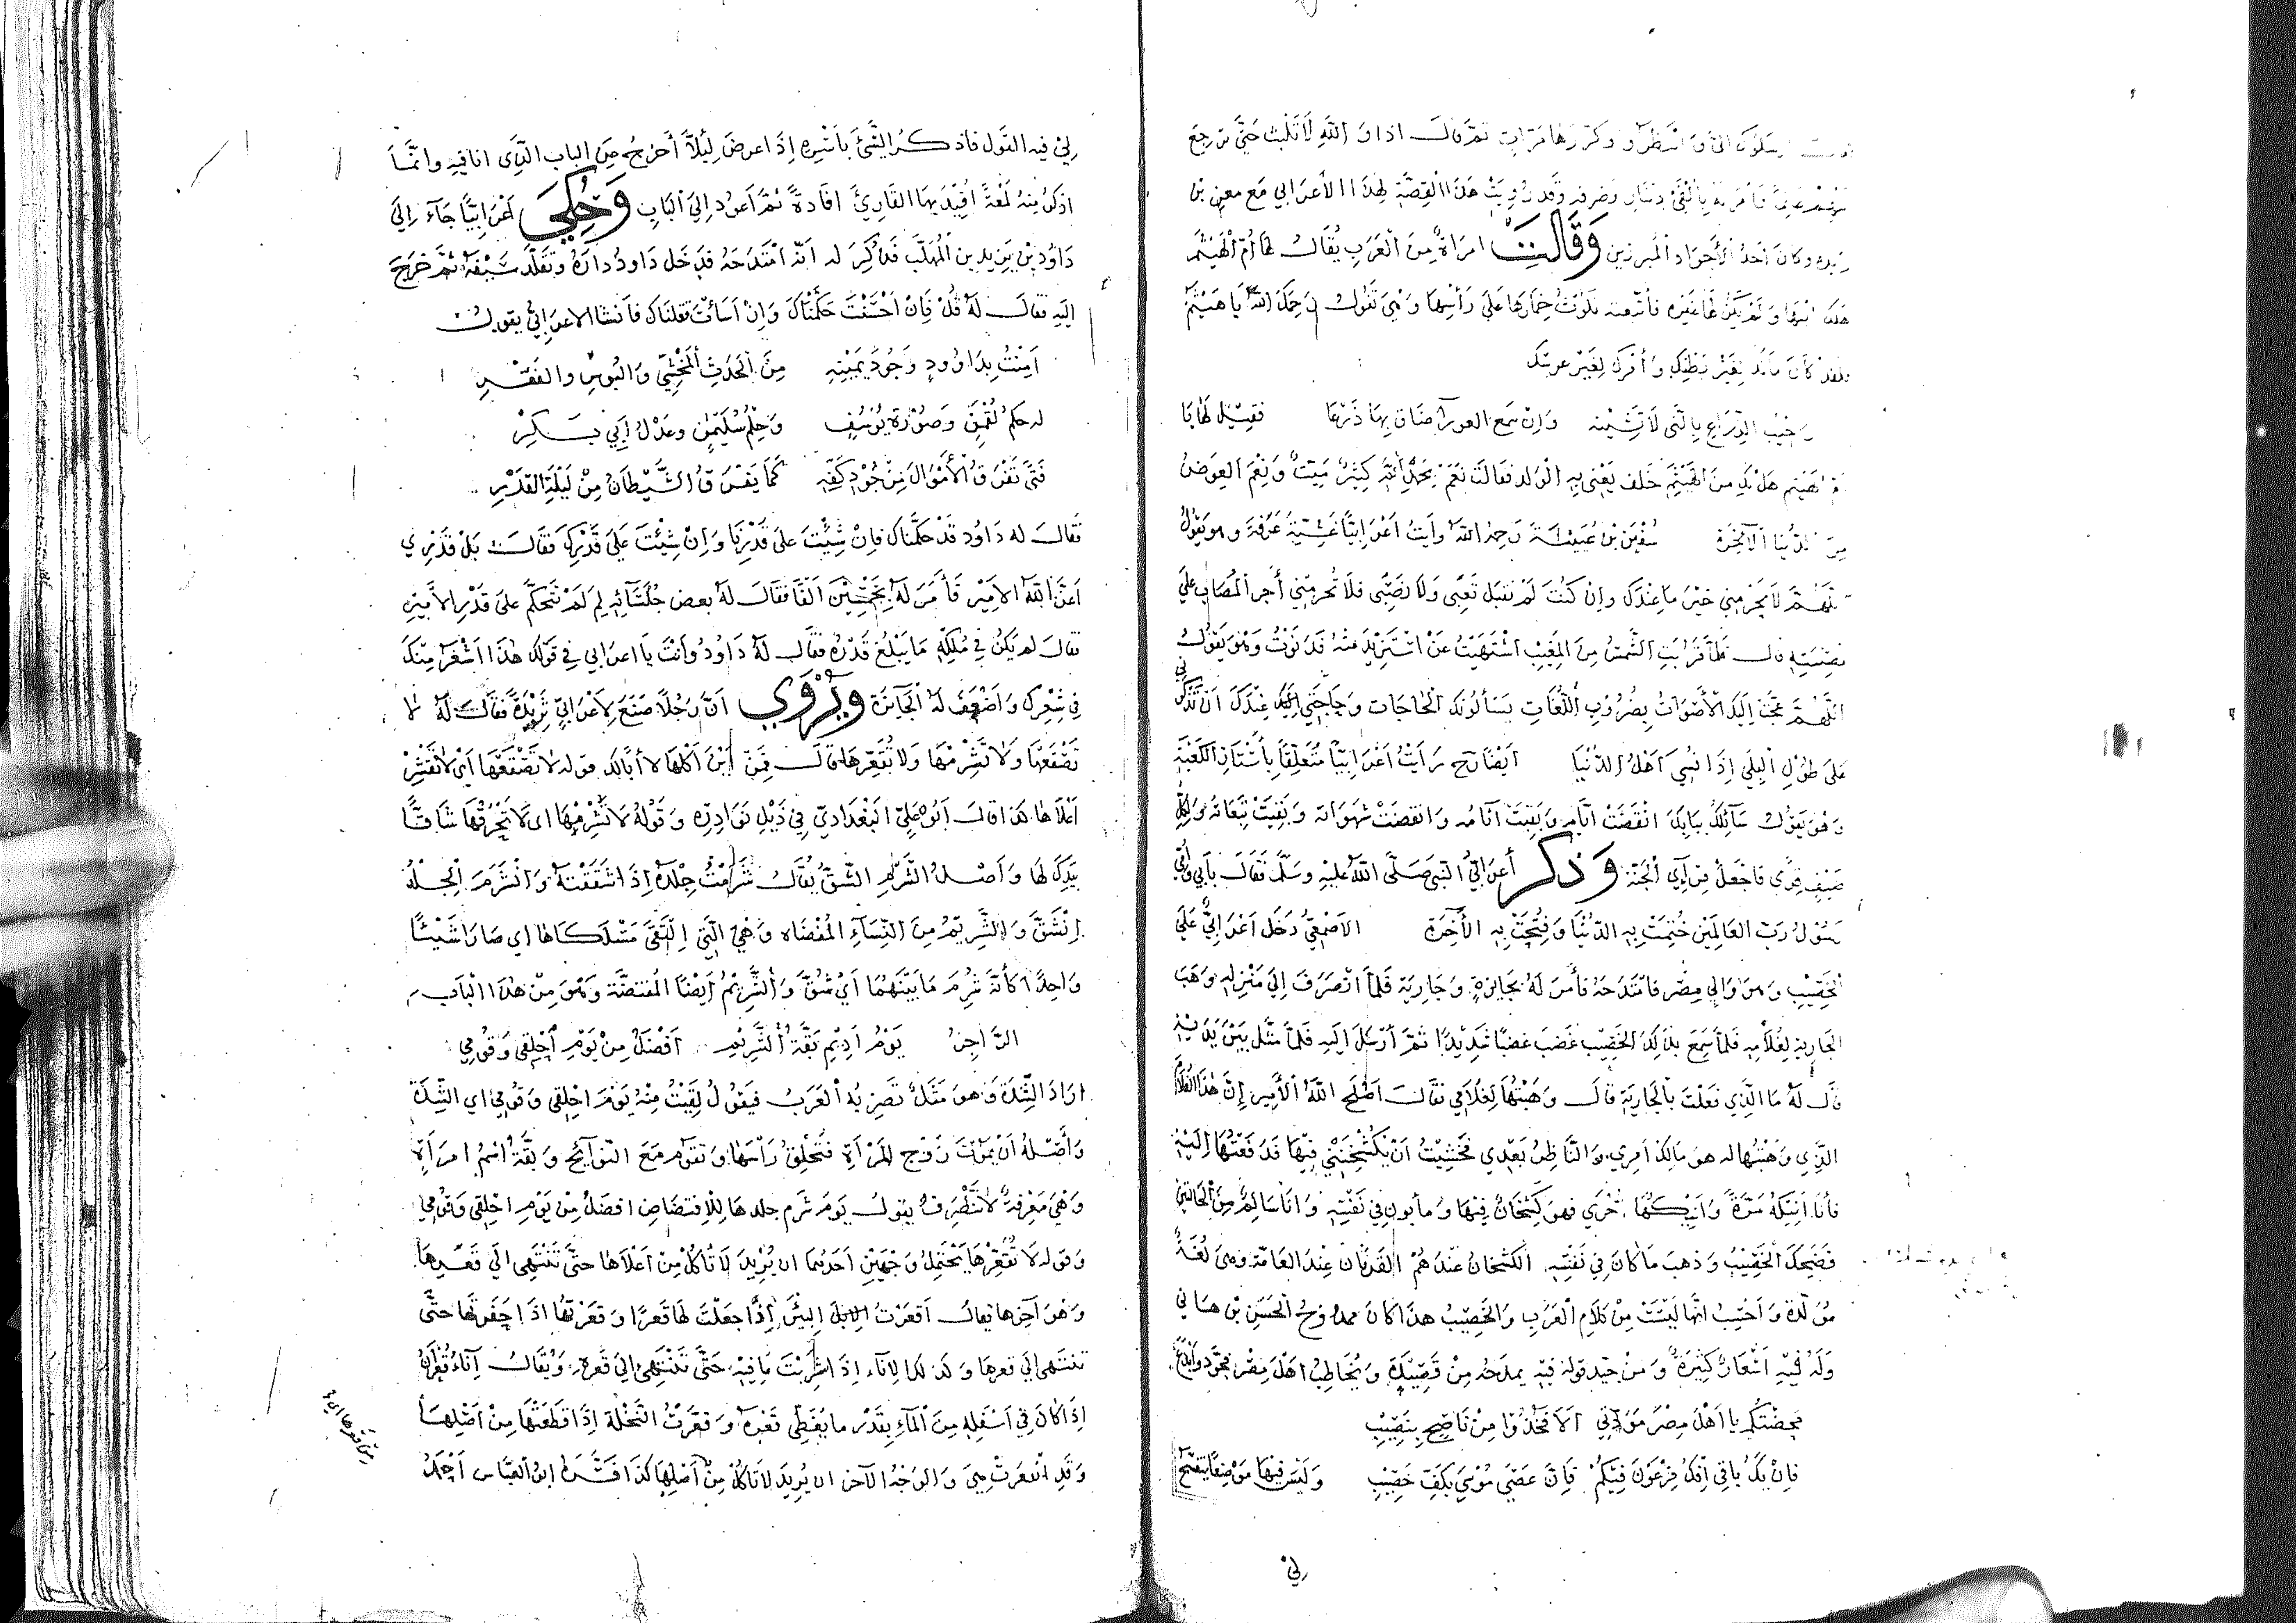 ارسلوك الي وانتظر و وكررها مرات ثم قال اذا والله لا تلبث حتى ترجع
فامر له بالفي دينار وصرفه وقد رويت هذه القصة لهذا الاعرابي مع معن بن
زايده وكان احد الأجواد المبرزين وَقَالَت امرَاةٌ مِنَ العَرَبِ يُقَالُ لها أم الهَيثم
هلك ابنها و لم يكن لها غيره فلوثت خمارها على رأسها وهي تقول رحمك الله يا هيثم
فلقد كان مالك لغير بطنك وأمرك لغير عرسك
رحيب الذراع بالتي لا تشينه وان سمع العورآ ضاق بها ذرعا فقيل لها يا
ام الهيثم هل لك من الهيثم خلف يعني به الولد فقالت نعم بحمد الله كثير طيب ونعم العوض
من الدنيا الآخرة سفين بن عيينة رحمه الله رأيت اعرابيا عشية عرفة وهو يقول
اللهم لا تحرمني خير ما عندك وان كنت لم تقبل تعبي ولا نصبي فلا تحرمني أجر المصاب على
مصيبته قال فلما قربت الشمس من المغيب اشتهيت ان استزيد منه فدنوت وهو يقول
اللهم عجت اليك الأصوات بضروب اللغات يسألونك الحاجات وحاجتي اليك عندك ان تذكرني
على طول البلى إذا نسي اهل الدنيا ايضا رأيت أعرابيا متعلقا بأستار الكعبة
وهو يقول سائلك ببابك انقضت أيامه وبقيت آثامه وانقضت شهواته وبقيت تبعاته ولكل
ضيف قرى فاجعل قراي الجنة وذكر أعرابي النبي صلى الله عليه وسلم فقال بأبي وأمي
رسول رب العالمين ختمت به الدنيا وفتحت به الآخرة الأصمعي دخل اعرابي على
الخصيب وهو والي مصر فامتدحه فأمر له بجايزة وجارية فلما انصرف الى منزله وهب
الجارية لغلامه فلما سمع بذلك الخصيب غضب غضبا شديدا ثم أرسل اليه فلما مثل بين يديه
قال له ما الذي فعلت بالجارية قال وهبتها لغلامي فقال اصلح الله الأمير إن هذا الغلام
الذي وهبتها له هو مالك امري والناظر بعدي فخشيت أن يكشخنني فيها فدفعتها اليه
فأنا انيكه مرة وانيكها أخرى فهو كشخان فيها ومأبون في نفسه وانا سالم من الحالتين
فضحك الخصيب وذهب ما كان في نفسه الكشخان عندهم القرنان عند العامة وهي لغة
مولدة واحسب انها ليست من كلام العرب والخصيب هذا كان ممدوح الحسن بن هاني
وله فيه اشعار كثيرة ومن جيد قوله فيه يمدحه من قصيدة ويخاطب اهل مصر فجود وابدع
محضتكم يا اهل مصر مودتي الا فخذوا من ناصح بنصيب
فان يك باقي افك فرعون فيكم فان عصى موسى بكف خصيب وليس فيها موضعا ينفتح
لي
لي فيه القول فاذكر الشيء باثره اذا عرض ليلا أخرج من الباب الذي انا فيه وانما
اذكر منه لمعة افيد بها القارئ افادة ثم أعود الى الباب وَحُكِيَ اعرابيا جآء الى
داود بن يزيد بن المهلب فذكر له انه امتدحه فدخل داود داره وتقلد سيفه ثم خرج
اليه فقال له قل فان احسنت حكمناك وان اسأت قتلناك فأنشا الاعرابي يقول
امنت بداوود وجود يمينه من الحدث المخشي والبوس والفقر
له حكم لقمن وصورة يوسف وحلم سليمن وعدل أبي بكر
فتى تفرق الأموال من جود كفه كما يفرق الشيطان من ليلة القدر
فقال له داود قد حكمناك فان شئت على قدرنا وان شئت على قدرك فقال بل قدري
اعز الله الامير فأمر له بخمسين الفا فقال له بعض جلسآئه لم لم تحكم على قدر الأمير
قال لم يكن في ملكه ما يبلغ قدره فقال له داود وأنت يا اعرابي في قولك هذا اشعر منك
في شعرك واضعف له الجائزة ويُرْوَي ان رجلا صنع لاعرابي ثريدة فقال له لا
تصقعها ولا تشرمها ولا تقعرها قال فمن أين آكلها لا أبالك قوله لا تصقعها أي لا تقشر
اعلاها كذا قال أبو علي البغدادي في ذيل نوادره وقوله لا تشرمها اى لا تخرقها شاقا
بيدك لها وأصل الشرم الشق يقال شرمت جلده اذا شققته وانشرم الجلد
انشق والشريم من النساء المفضاه وهي التي التقى مسلكاها اي صارا شيئا
واحدا كأنه شرم ما بينهما أي شق والشريم أيضا المفتضة وهو من هذا الباب
الراجز يوم اديم بقة الشريم افضل من يوم احلقي وقومي
اراد الشدة وهو مثل تضربه العرب فيقول لقيت منه يوم احلقي وقومي اي الشدة
وأصله ان يموت زوج المرأة فتحلق رأسها وتقوم مع النوآئح وبقة اسم امرأة
وهي معرفة لا تنصرف يقول يوم شرم جلدها للافتضاض افضل من يوم احلقي وقومي
وقوله لا تقعرها يحتمل وجهين احدهما ان يريد لا تأكل من اعلاها حتى تنتهى الى قعرها
وهو آخرها يقال اقعرت البئر إذا جعلت لها قعرا وقعرتها اذا حفرتها حتى
تنتهى الى قعرها وكذلك الانآء اذا شربت ما فيه حتى تنتهي الى قعره ويقال إنآء قعران
إذا كان في اسفله من المآء بقدر ما يغطي قعره وقعرت النخلة إذا قطعتها من اصلها
وقد انقعرت هي والوجه الآخر ان يريد لا تأكل من أصلها كذا فسره ابو العباس أحمد